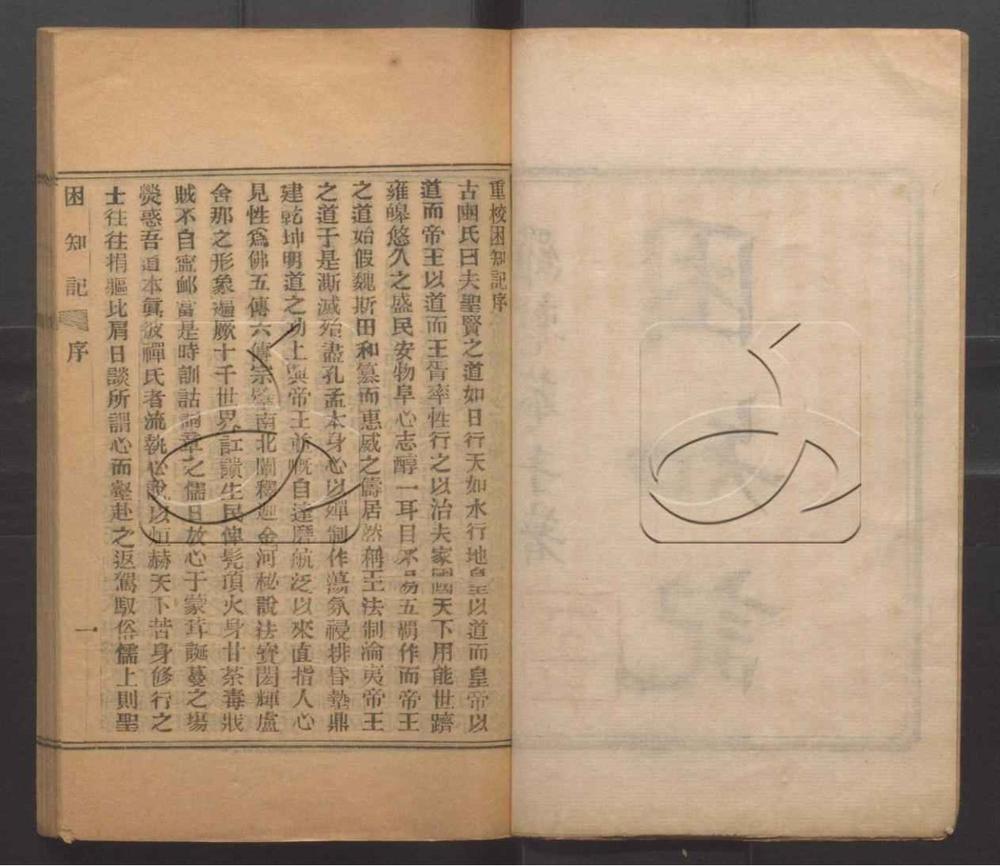 重校困知記序
古 氏曰夫聖賢之道如日行天如水行地皇 以道而皇帝以
道而帝王以道而王胥率性行之以治夫家國天下用能世躋
雍皞悠久之盛民安物阜心志醇一耳目不易五覇作而帝王
之道始假魏斯田和簒而惠威之儔居然稱王法制淪夷帝王
之道于是澌滅殆盡孔孟本身心以殫制作蕩氛祲排昏墊鼎
建乾坤明道之功上與帝王並 自達磨航泛以來直指人心
見性爲佛五傳六傳宗 南北闡釋迦金河秘說法寶閎輝盧
舍那之形象遍厥十千世界訌讀生民俾髡頂火身甘荼毒戕
賊不自寧邮當是時訓詁詞章之儒日放心于蒙茸誕蔓之場
熒惑吾道本眞彼禪氏者流執心說以 赫天下苦身修行之
士往往捐軀比肩日談所謂心而壑赴之返駕馭俗儒上則聖
困知記 序 一